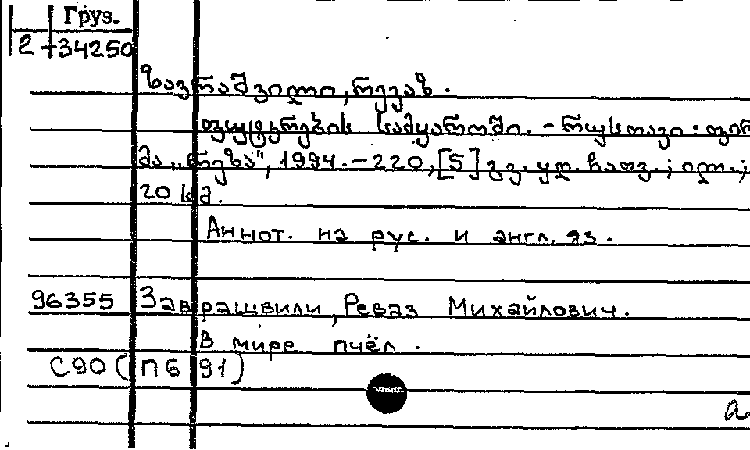 Груз.
2-34250
ზავრაშვილი, რევაზ.
ფუტკრების სამყაროში. - რუსთავი : ფირ
მა „რეზა", 1994. - 220, [5] გვ. ყდ. ჩათვ. ; ილ. ;
20 სმ.
Аннот. на рус. и англ. яз.
96355 Заврашвили, Реваз Михайлович.
В мире пчёл.
С90 (П6 91)